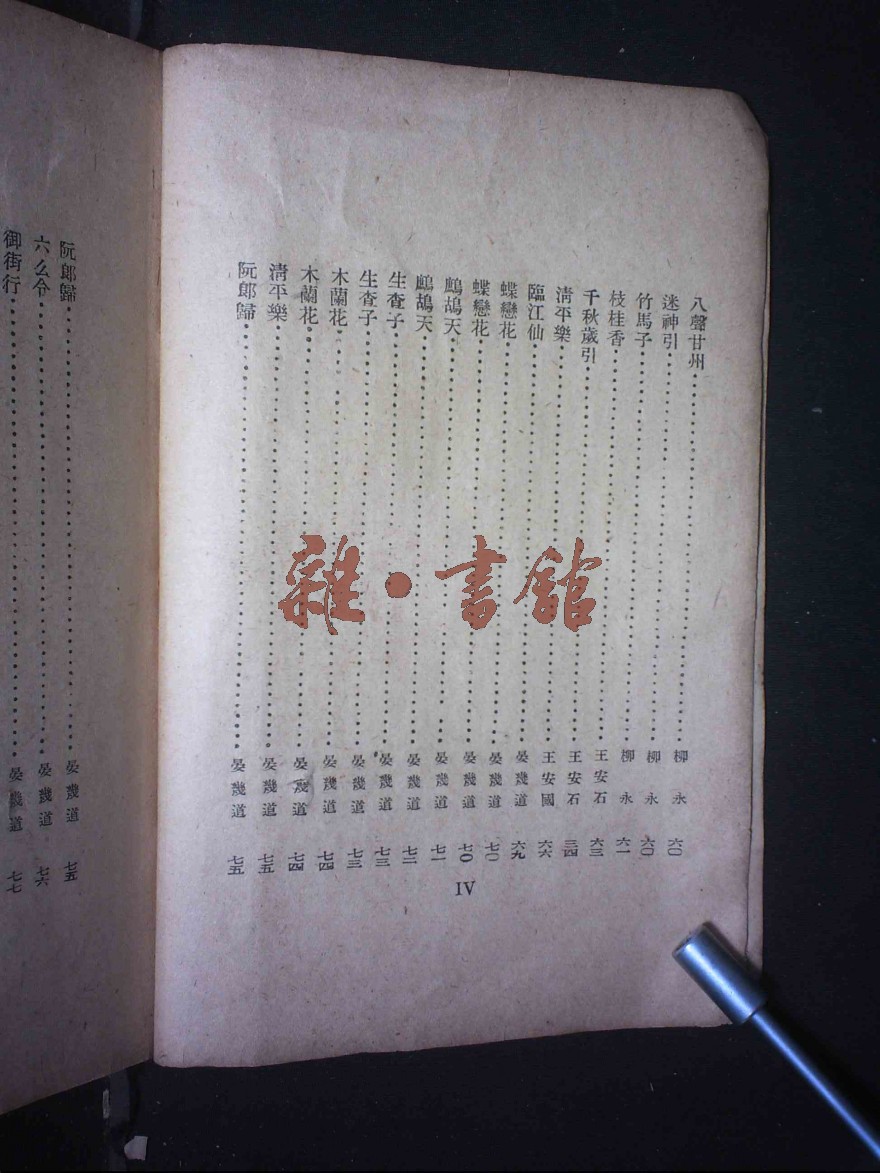 八聲甘州……柳永 六〇
迷神引……柳永 六〇
竹馬子……柳永 六一
枝桂香……王安石 六三
千秋歲引……王安石 三四
清平樂……王安國 六六
臨江仙……晏幾道 六九
蝶戀花……晏幾道 七〇
蝶戀花……晏幾道 七〇
鷓鴣天……晏幾道 七一
鷓鴣天……晏幾道 七二
生查子……晏幾道 七三
生查子……晏幾道 七三
木蘭花……晏幾道 七四
木蘭花……晏幾道 七四
清平樂……晏幾道 七五
阮郎歸……晏幾道 七五
IV
阮郎歸……晏幾道 七五
六么令……晏幾道 七六
御街行……晏幾道 七七
雜·書館